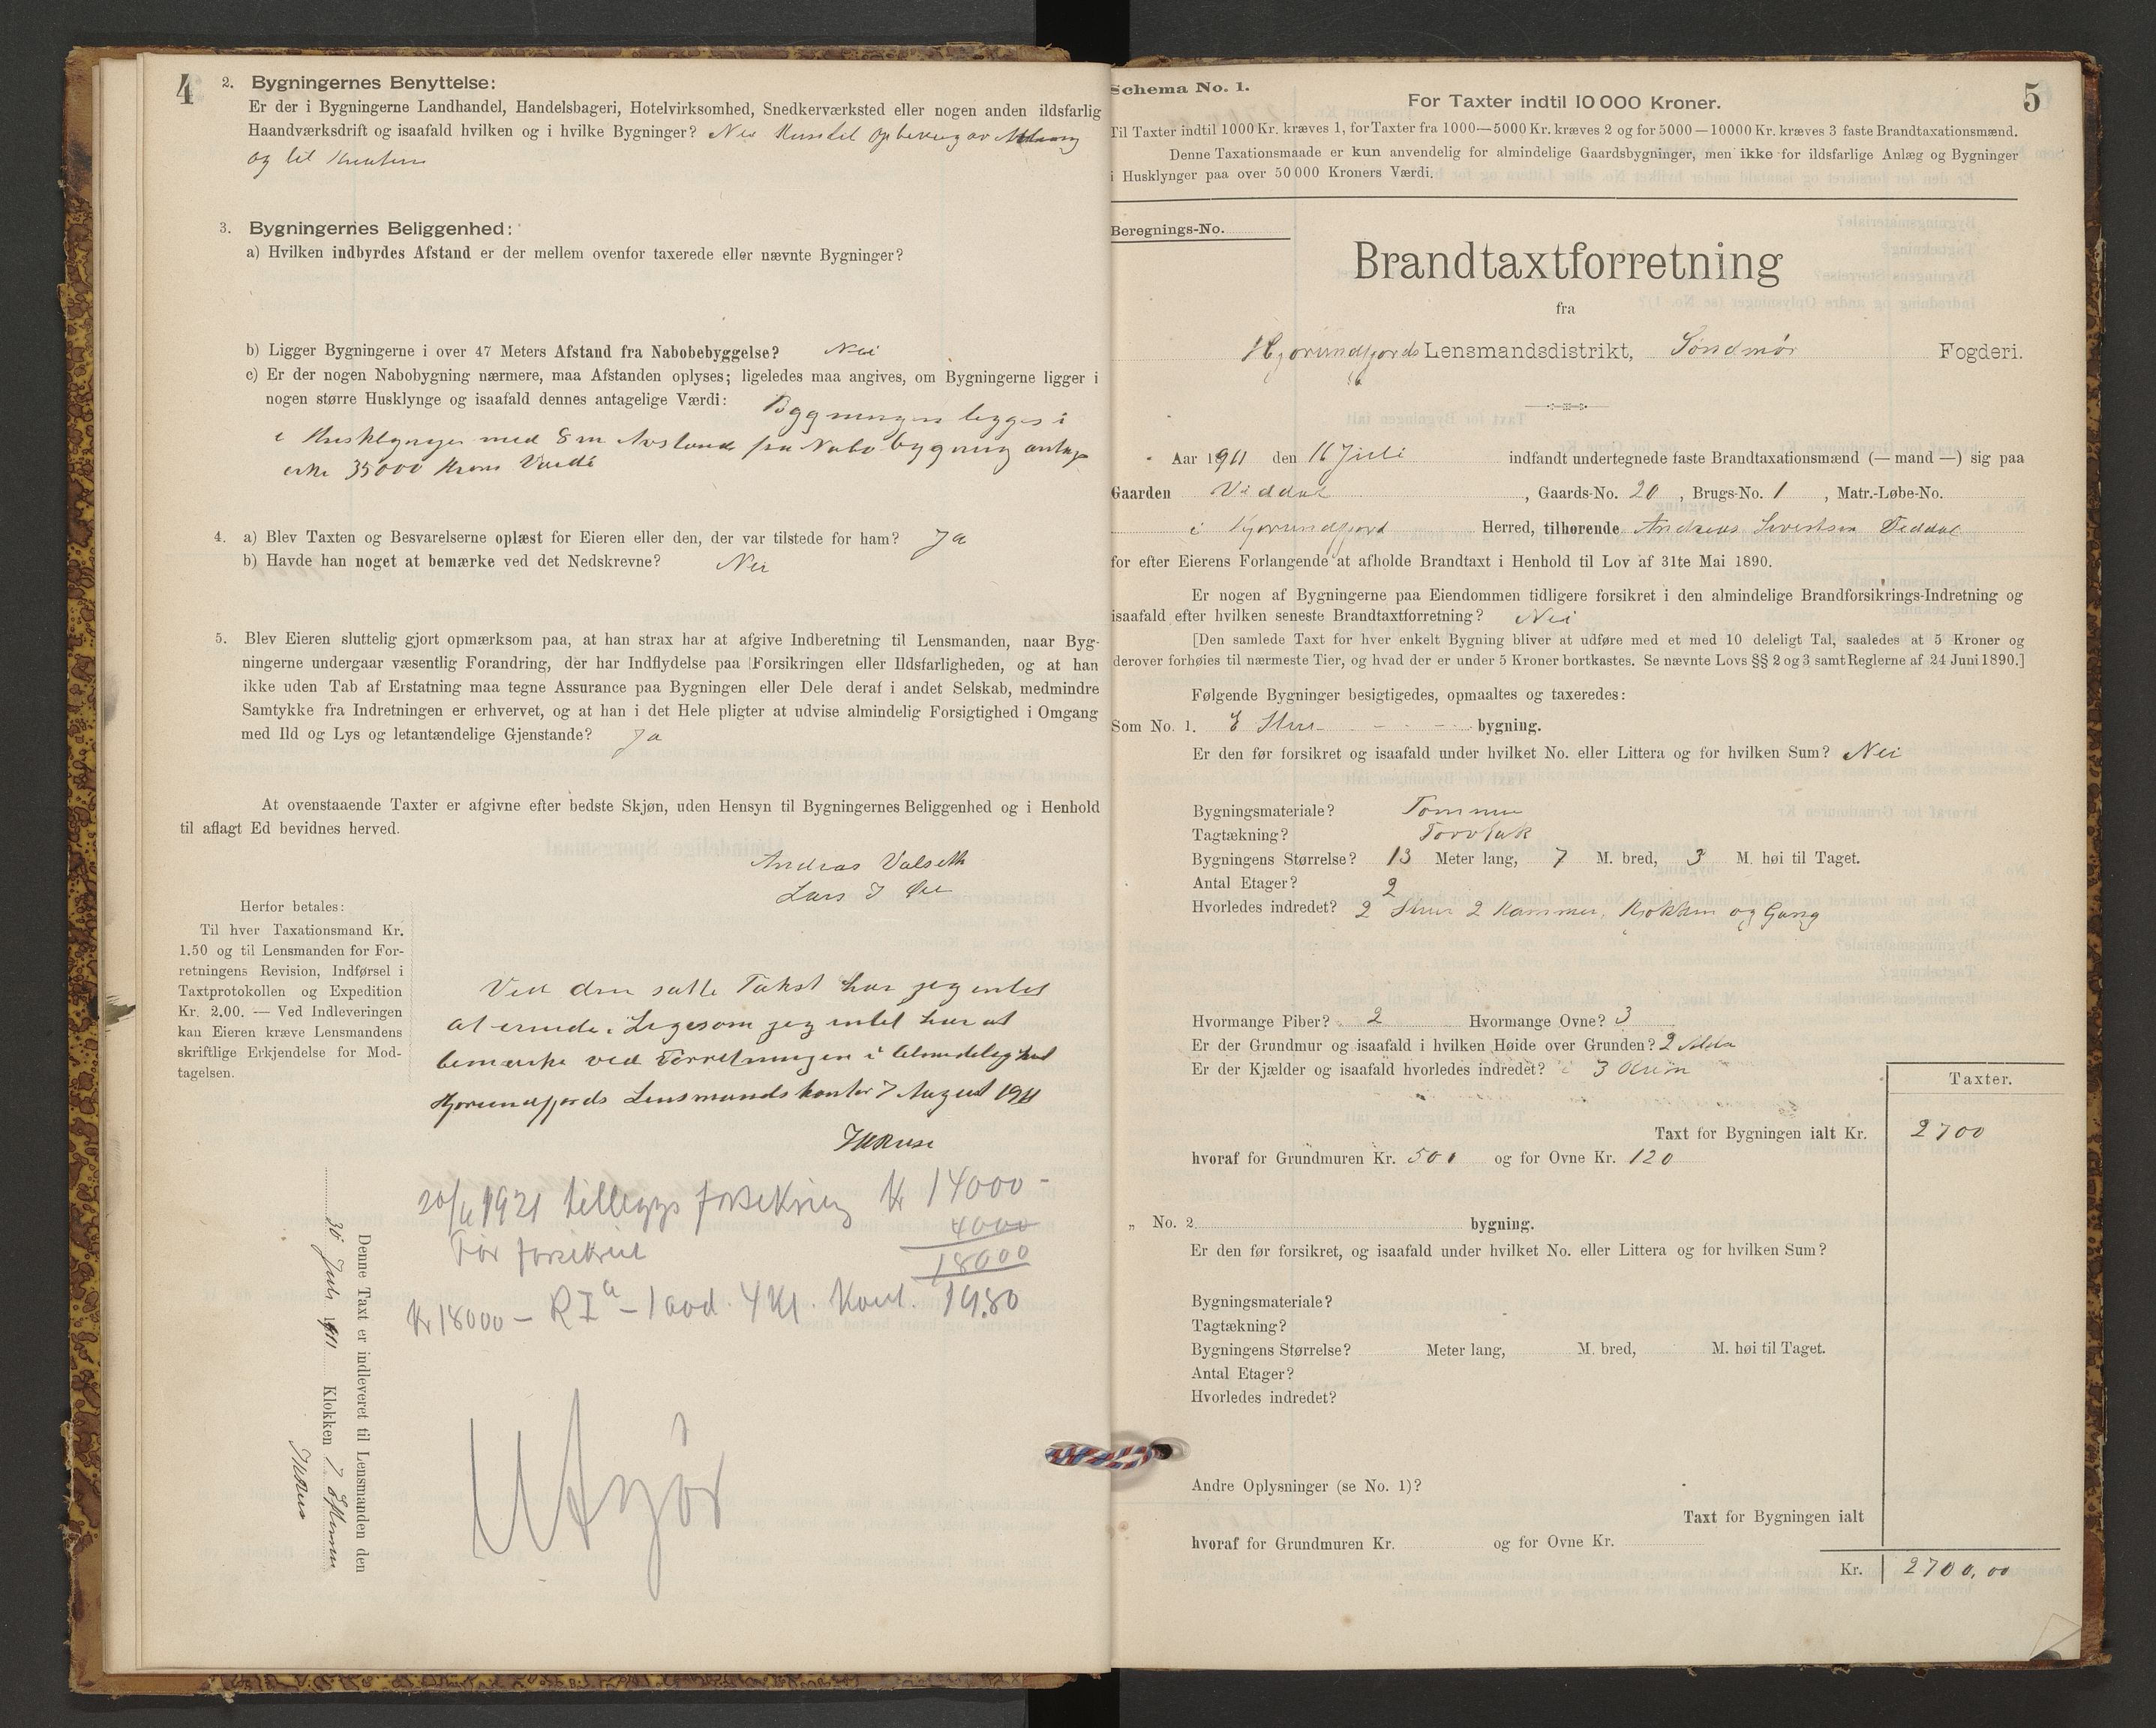 4
2. Bygningernes Benyttelse:
Er der i Bygningerne Landhandel, Handelsbageri, Hotelvirksomhed, Snedkerværksted eller nogen anden ildsfarlig
Haandværksdrift og isaafald hvilken og i hvilke Bygninger? Nei
og til
3. Bygningernes Beliggenhed:
a) Hvilken indbyrdes Afstand er der mellem ovenfor taxerede eller nævnte Bygninger?
b) Ligger Bygningerne i over 47 Meters Afstand fra Nabobebyggelse? Nei
c) Er der nogen Nabobygning nærmere, maa Afstanden oplyses; ligeledes maa angives, om Bygningerne ligger i
nogen større Husklynge og isaafald dennes antagelige Værdi: Bygningen ligges i
i med 8 m fra Nabobygning
35000 Kroners Værdi
4. a) Blev Taxten og Besvarelserne oplæst for Eieren eller den, der var tilstede for ham? Ja
b) Havde han noget at bemærke ved det Nedskrevne? Nei
5. Blev Eieren sluttelig gjort opmærksom paa, at han strax har at afgive Indberetning til Lensmanden, naar Byg-
ningerne undergaar væsentlig Forandring, der har Indflydelse paa Forsikringen eller Ildsfarligheden, og at han
ikke uden Tab af Erstatning maa tegne Assurance paa Bygningen eller Dele deraf i andet Selskab, medmindre
Samtykke fra Indretningen er erhvervet, og at han i det Hele pligter at udvise almindelig Forsigtighed i Omgang
med Ild og Lys og letantændelige Gjenstande? Ja
At ovenstaaende Taxter er afgivne efter bedste Skjøn, uden Hensyn til Bygningernes Beliggenhed og i Henhold
til aflagt Ed bevidnes herved.
Andreas Valseth
Lars J
Herfor betales:
Til hver Taxationsmand Kr.
1.50 og til Lensmanden for For-
retningens Revision, Indførsel i
Taxtprotokollen og Expedition
Kr. 2.00. — Ved Indleveringen
kan Eieren kræve Lensmandens
skriftlige Erkjendelse for Mod-
tagelsen.
Ved den satte Takst har jeg intet
at erindre. Ligesom jeg intet har at
bemærke ved Forretningen i
Hjorundfjords Lensmandskontor 7 August 1911
Denne Taxt er indleveret til Lensmanden den
30 Juli 1911 Klokken 7 Eftermm
1921 tillegs forsikring Kr 14000-
4000
Før forsikret 18000
Kr 18000 - R I a - 1 avd. 4 Kl. Kont. 19.80
Utgjør
5
Schema No. 1.
For Taxter indtil 10 000 Kroner.
Til Taxter indtil 1000 Kr. kræves 1, for Taxter fra 1000—5000 Kr. kræves 2 og for 5000—10000 Kr. kræves 3 faste Brandtaxationsmænd.
Denne Taxationsmaade er kun anvendelig for almindelige Gaardsbygninger, men ikke for ildsfarlige Anlæg og Bygninger
i Husklynger paa over 50 000 Kroners Værdi.
Beregnings-No.
Brandtaxtforretning
fra
Hjorundfjords Lensmandsdistrikt, Søndmør Fogderi.
Aar 1911 den 11 Juli indfandt undertegnede faste Brandtaxationsmænd (— mand —) sig paa
Gaarden Viddal, Gaards-No. 20, Brugs-No. 1, Matr.-Løbe-No.
i Hjorundfjord Herred, tilhørende Andreas Sivertsen Viddal
for efter Eierens Forlangende at afholde Brandtaxt i Henhold til Lov af 31te Mai 1890.
Er nogen af Bygningerne paa Eiendommen tidligere forsikret i den almindelige Brandforsikrings-Indretning og
isaafald efter hvilken seneste Brandtaxtforretning? Nei
[Den samlede Taxt for hver enkelt Bygning bliver at udføre med et med 10 deleligt Tal, saaledes at 5 Kroner og
derover forhøies til nærmeste Tier, og hvad der er under 5 Kroner bortkastes. Se nævnte Lovs §§ 2 og 3 samt Reglerne af 24 Juni 1890.]
Følgende Bygninger besigtigedes, opmaaltes og taxeredes:
Som No. 1. E Stue - - - bygning.
Er den før forsikret og isaafald under hvilket No. eller Littera og for hvilken Sum? Nei
Bygningsmateriale? Tømmer
Tagtækning? Torvtak
Bygningens Størrelse? 13 Meter lang, 7 M. bred, 3 M. høi til Taget.
Antal Etager? 2
Hvorledes indredet? 2 Stuer 2 Kammer, Kjøkken og Gang
Hvormange Piber? 2 Hvormange Ovne? 3
Er der Grundmur og isaafald i hvilken Høide over Grunden? 2
Er der Kjælder og isaafald hvorledes indredet? i 3 Rum
Taxter.
Taxt for Bygningen ialt Kr. 2700
hvoraf for Grundmuren Kr. 500 og for Ovne Kr. 120
„ No. 2 bygning.
Er den før forsikret, og isaafald under hvilket No. eller Littera og for hvilken Sum?
Bygningsmateriale?
Tagtækning?
Bygningens Størrelse? Meter lang, M. bred, M. høi til Taget.
Antal Etager?
Hvorledes indredet?
Andre Oplysninger (se No. 1)?
Taxt for Bygningen ialt
hvoraf for Grundmuren Kr. og for Ovne Kr.
Kr. 2700,00